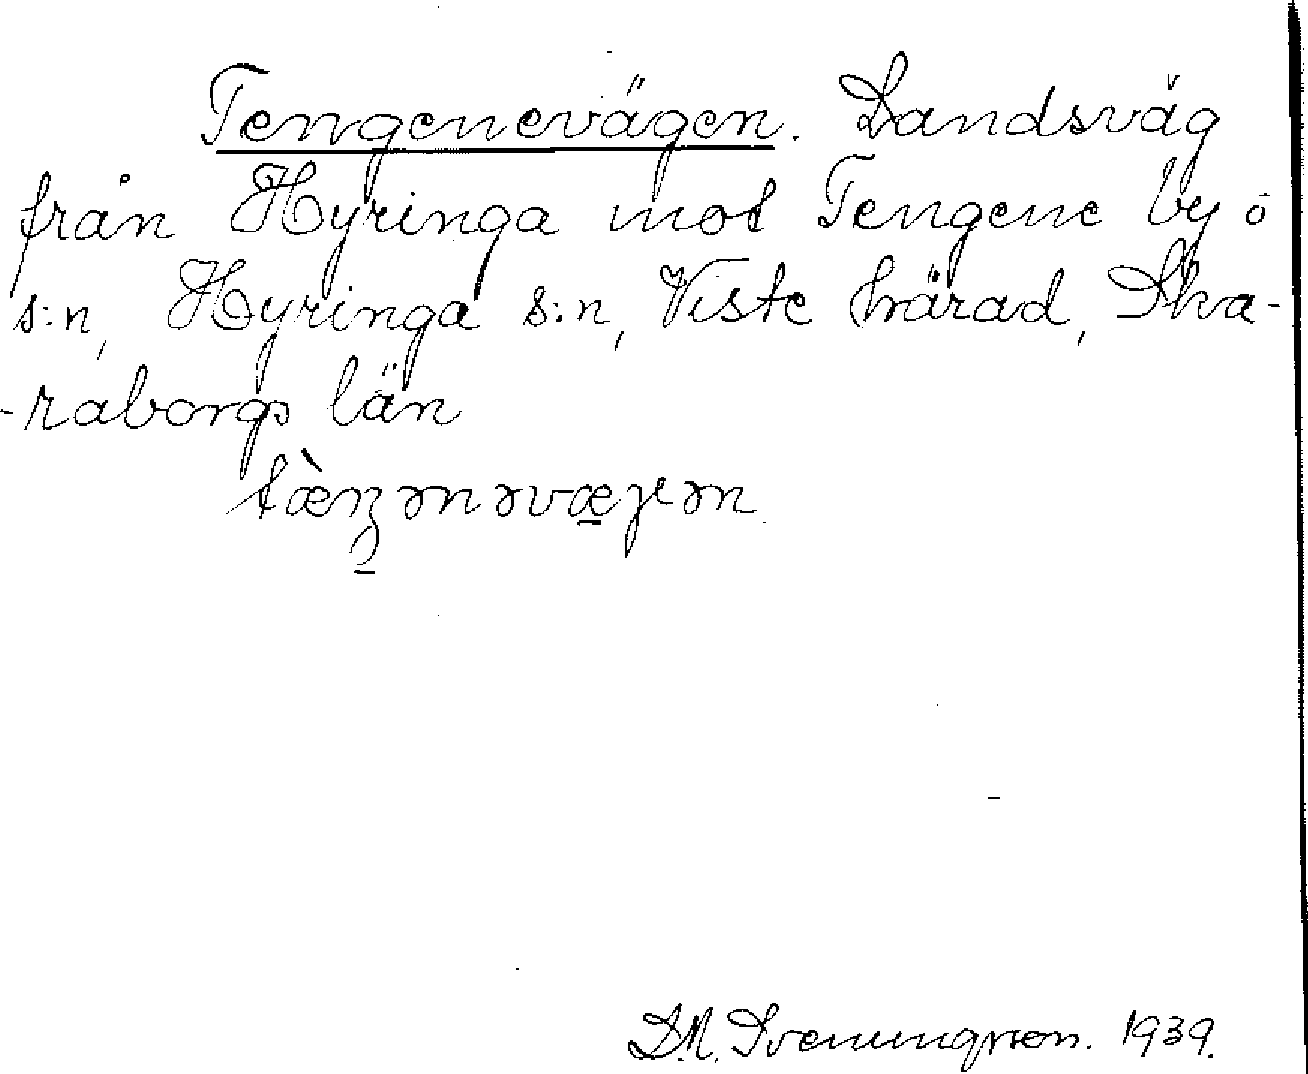 Tengenevägen. Landsväg
från Hyringa mot Tengene by o
s:n, Hyringa s:n, Viste härad, Ska-
-raborgs län
D.N. Svenungsson. 1939.